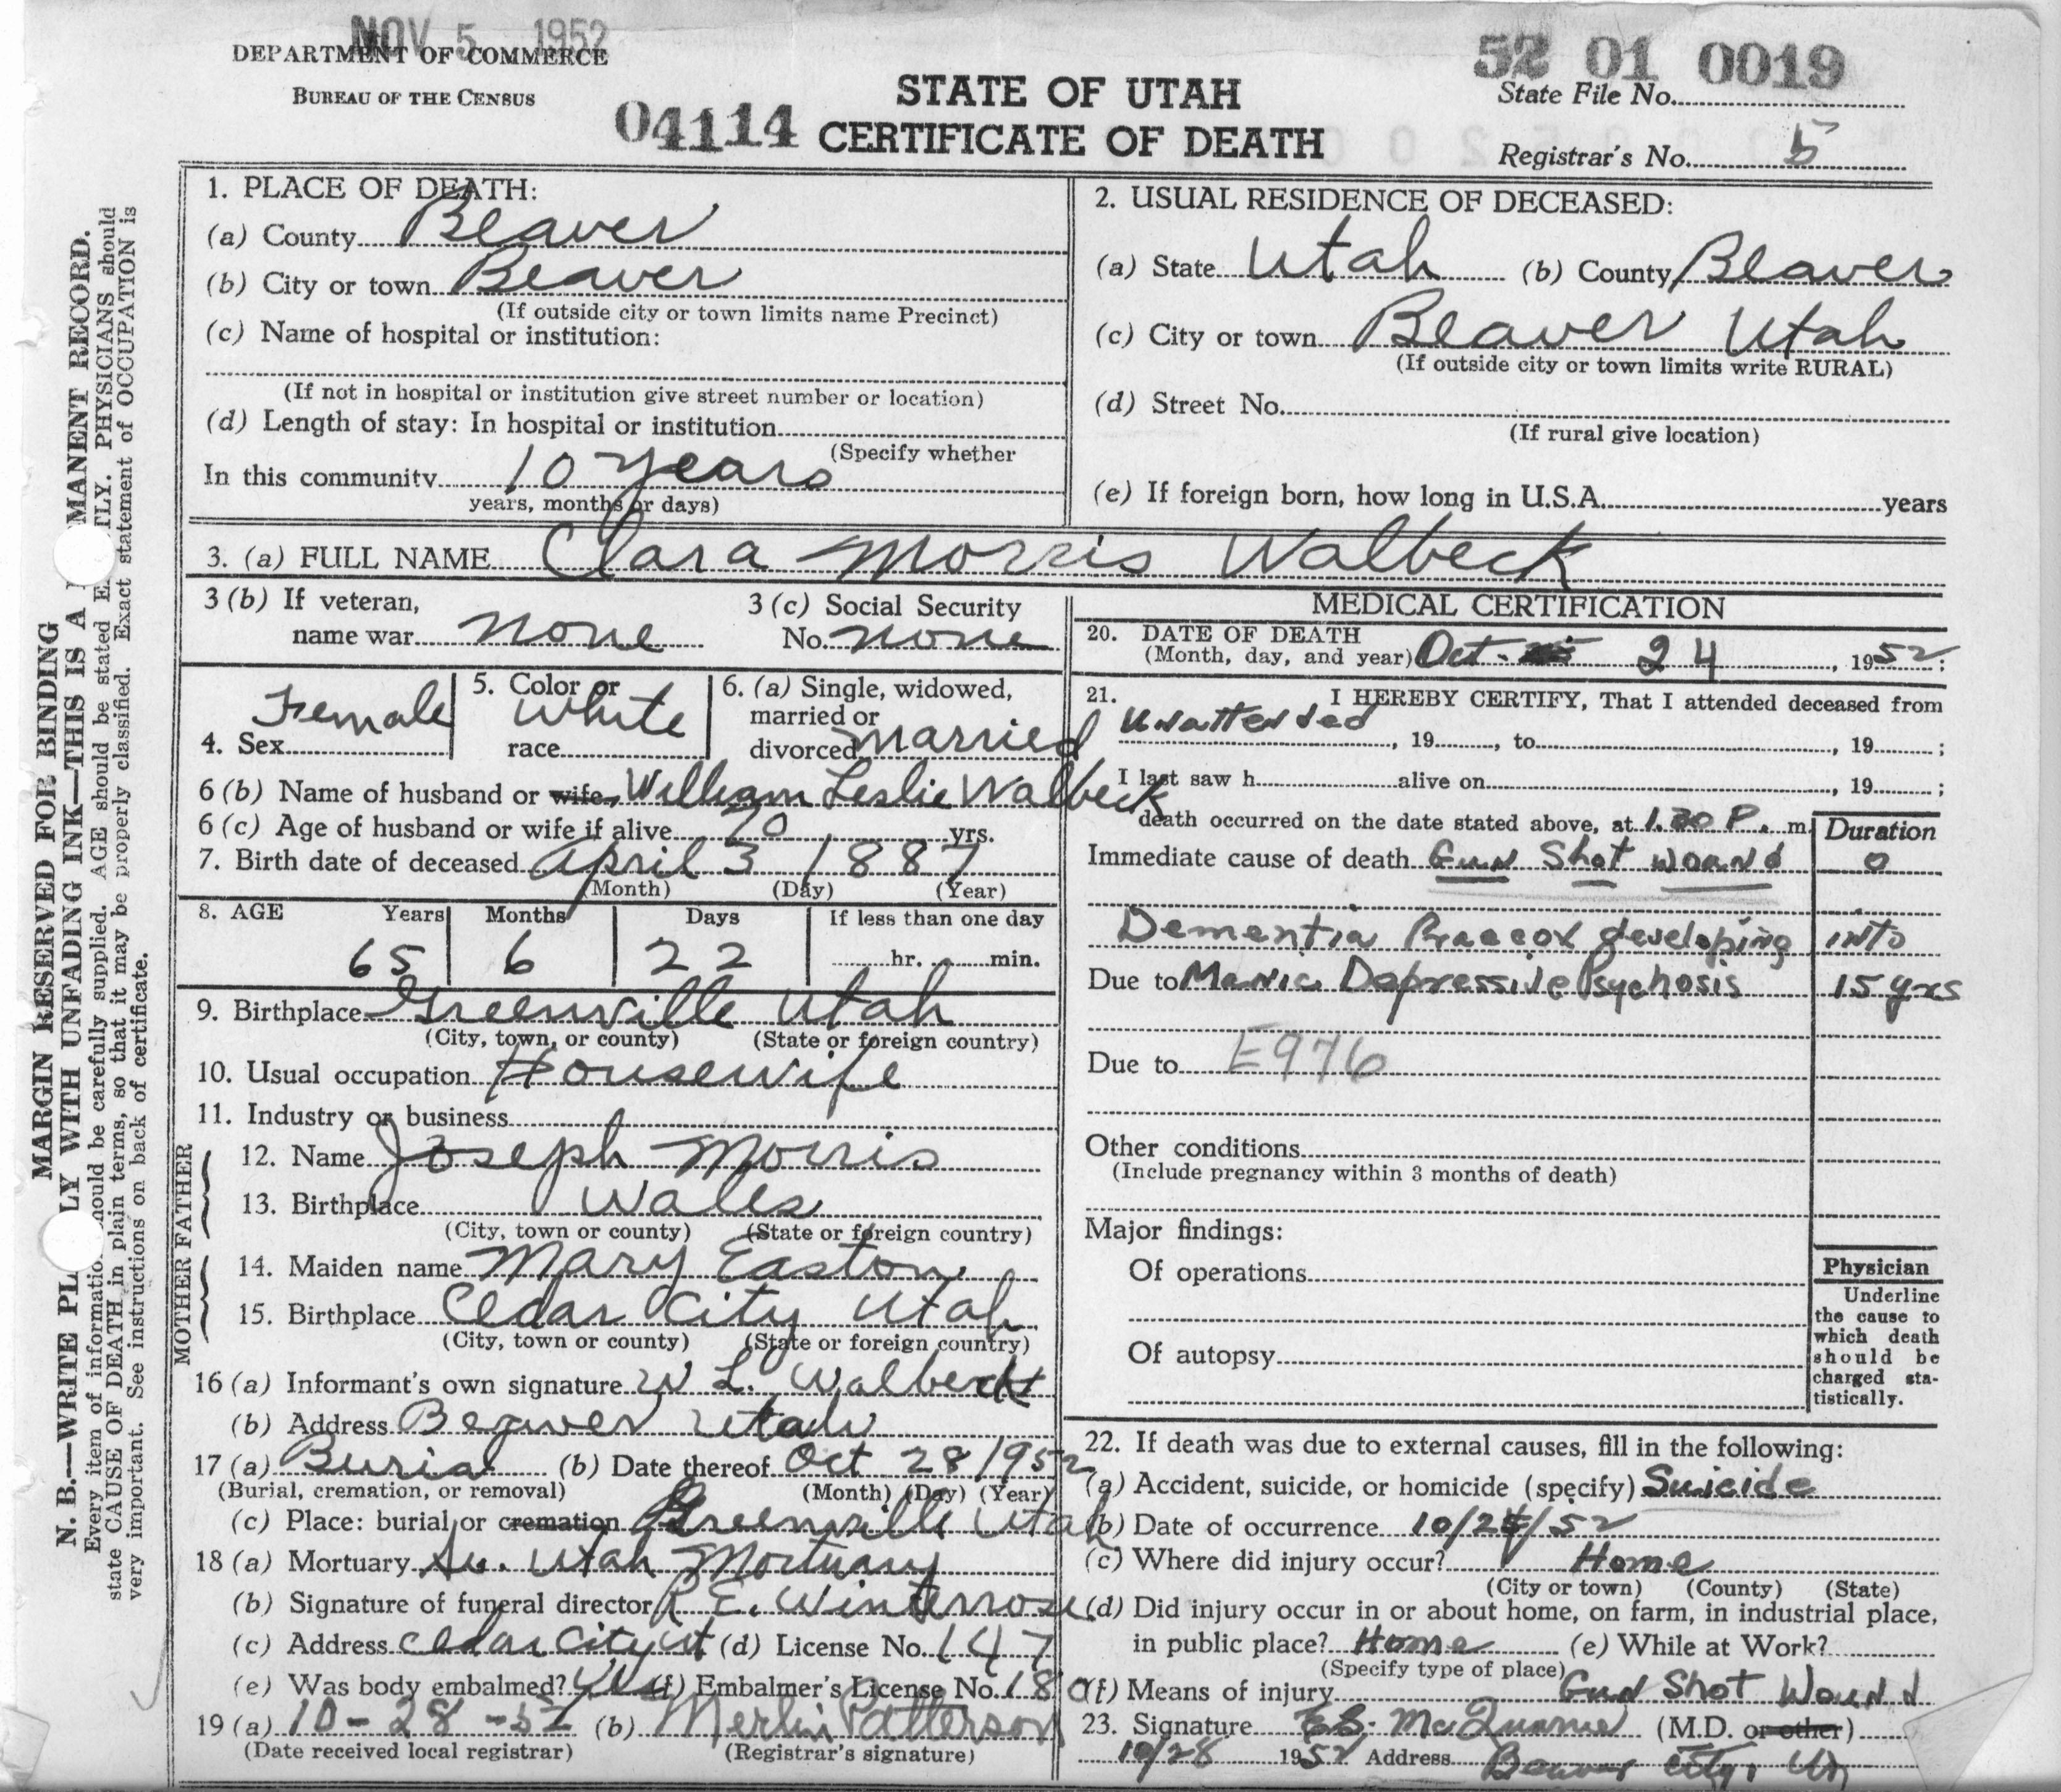 NOV 5 1952
DEPARTMENT OF COMMERCE
BUREAU OF THE CENSUS
04114
STATE OF UTAH
CERTIFICATE OF DEATH
52 01 0019
State File No.
Registrar's No. 5
MARGIN RESERVED FOR BINDING
N. B.—WRITE PL LY WITH UNFADING INK—THIS IS A MANENT RECORD.
Every item of informatio hould be carefully supplied. AGE should be stated E TLY. PHYSICIANS should
state CAUSE OF DEATH in plain terms, so that it may be properly classified. Exact statement of OCCUPATION is
very important. See instructions on back of certificate.
1. PLACE OF DEATH:
(a) County Beaver
(b) City or town Beaver
(If outside city or town limits name Precinct)
(c) Name of hospital or institution:
(If not in hospital or institution give street number or location)
(d) Length of stay: In hospital or institution
(Specify whether
In this community 10 years
years, months or days)
2. USUAL RESIDENCE OF DECEASED:
(a) State Utah (b) County Beaver
(c) City or town Beaver Utah
(If outside city or town limits write RURAL)
(d) Street No.
(If rural give location)
(e) If foreign born, how long in U.S.A. years
3. (a) FULL NAME Clara Morris Walbeck
3 (b) If veteran,
name war none
3 (c) Social Security
No. none
4. Sex Female
5. Color or
race White
6. (a) Single, widowed,
married or
divorced married
6 (b) Name of husband or wife William Leslie Walbeck
6 (c) Age of husband or wife if alive 70 yrs.
7. Birth date of deceased April 3 1887
(Month) (Day) (Year)
8. AGE Years Months Days If less than one day
65 6 22 hr. min.
9. Birthplace Greenville Utah
(City, town, or county) (State or foreign country)
10. Usual occupation Housewife
11. Industry or business
FATHER
12. Name Joseph Morris
13. Birthplace Wales
(City, town or county) (State or foreign country)
MOTHER
14. Maiden name Mary Easton
15. Birthplace Cedar City Utah
(City, town or county) (State or foreign country)
16 (a) Informant's own signature W L. Walbeck
(b) Address Beaver Utah
17 (a) Burial (b) Date thereof Oct 28 1952
(Burial, cremation, or removal) (Month) (Day) (Year)
(c) Place: burial or cremation Greenville Utah
18 (a) Mortuary So. Utah Mortuary
(b) Signature of funeral director R E. Winterrose
(c) Address Cedar City Ut (d) License No. 147
(e) Was body embalmed? Yes (f) Embalmer's License No. 180
19 (a) 10-28-52 (b) Merlin Patterson
(Date received local registrar) (Registrar's signature)
MEDICAL CERTIFICATION
20. DATE OF DEATH
(Month, day, and year) Oct. 24, 1952;
21. I HEREBY CERTIFY, That I attended deceased from
Unattended, 19, to, 19;
I last saw h alive on, 19;
death occurred on the date stated above, at 1.30 P. m.
Duration
Immediate cause of death Gun Shot wound 0
Dementia Praecox developing into
Due to Manic Depressive Psychosis 15 yrs
Due to E976
Other conditions
(Include pregnancy within 3 months of death)
Major findings:
Of operations
Of autopsy
Physician
Underline
the cause to
which death
should be
charged sta-
tistically.
22. If death was due to external causes, fill in the following:
(a) Accident, suicide, or homicide (specify) Suicide
(b) Date of occurrence 10/24/52
(c) Where did injury occur? Home
(City or town) (County) (State)
(d) Did injury occur in or about home, on farm, in industrial place,
in public place? Home (e) While at Work?
(Specify type of place)
(f) Means of injury Gun Shot Wound
23. Signature McQuarrie (M.D. or other)
10/28 1952 Address Beaver City, Ut